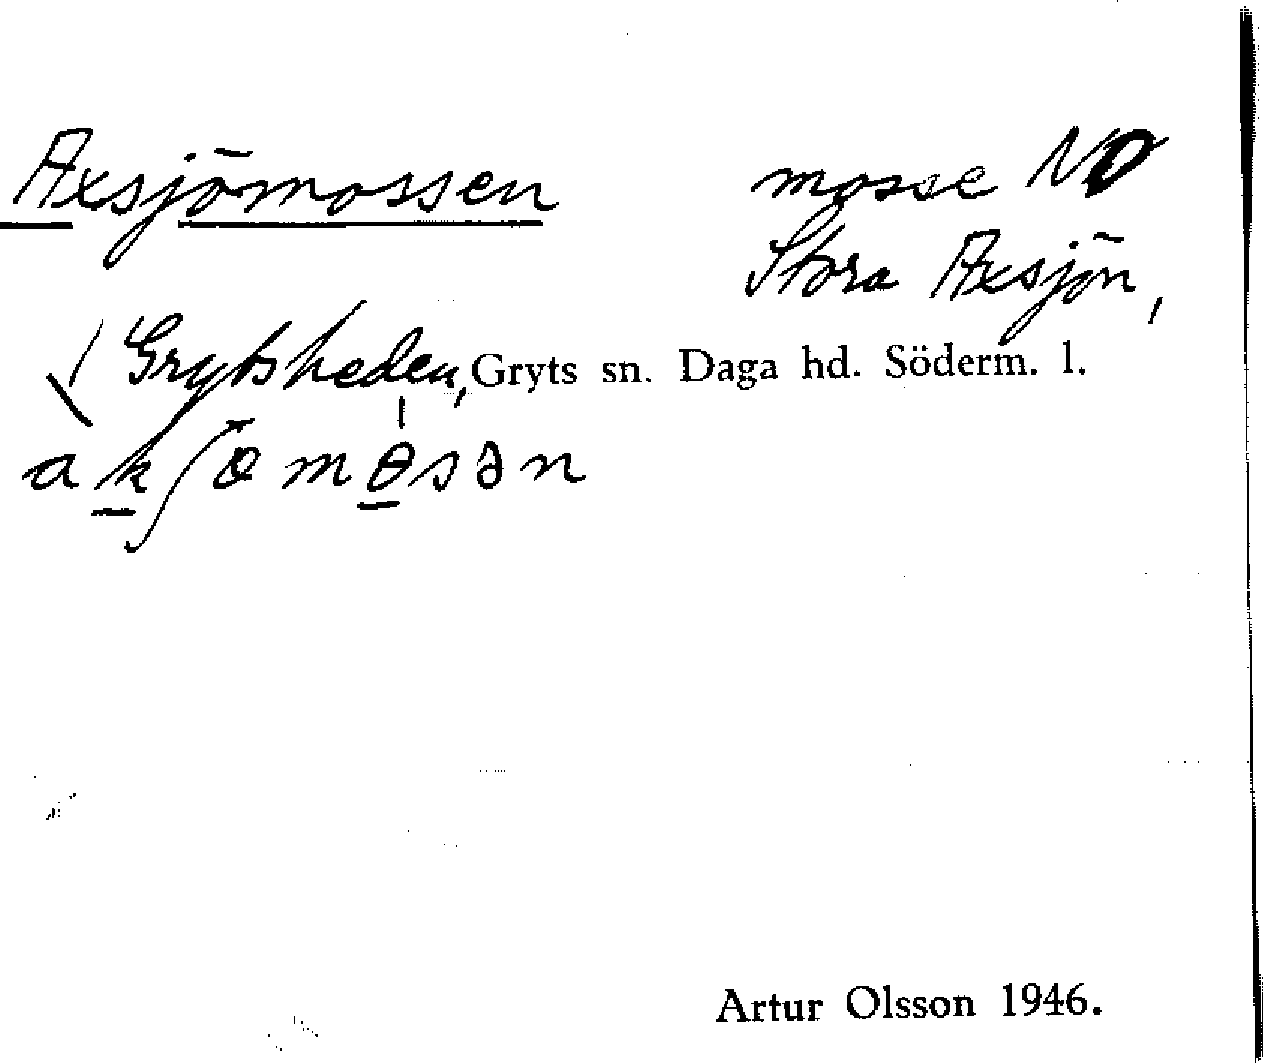 Axsjömossen mosse NO
Stora Axsjön,
Grytsheden, Gryts sn. Daga hd. Söderm. l.
akʃömɵsən
Artur Olsson 1946.